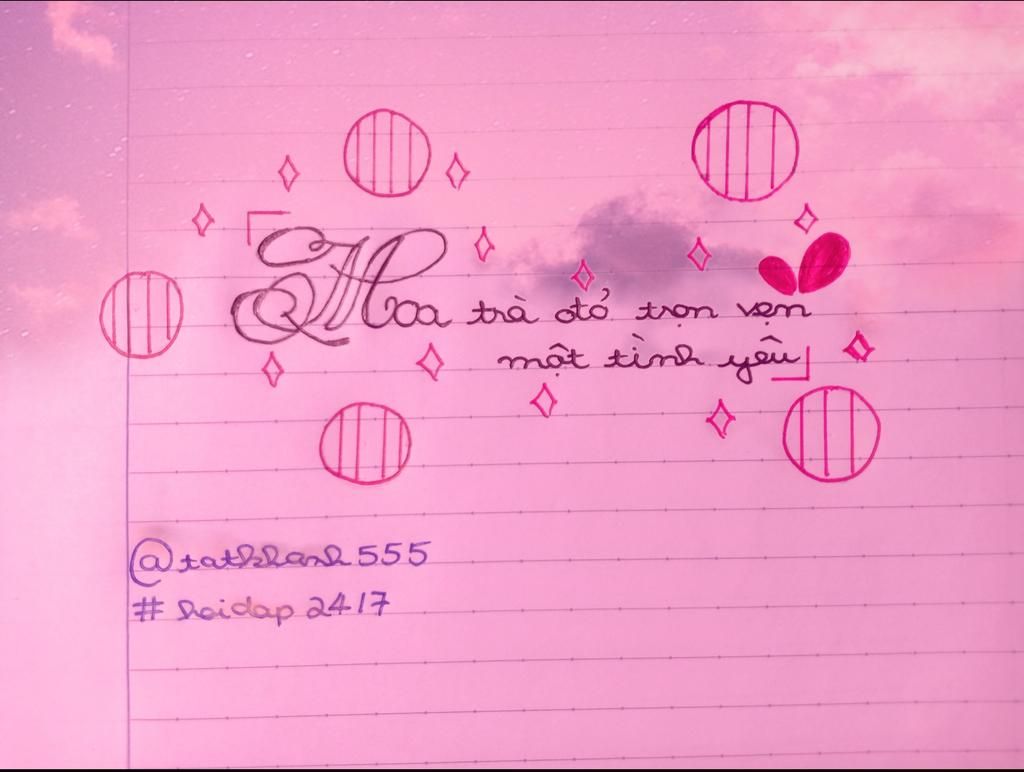 Hoa trà đỏ trọn vẹn
một tình yêu
@tatkhanh555
#hoidap 24/7